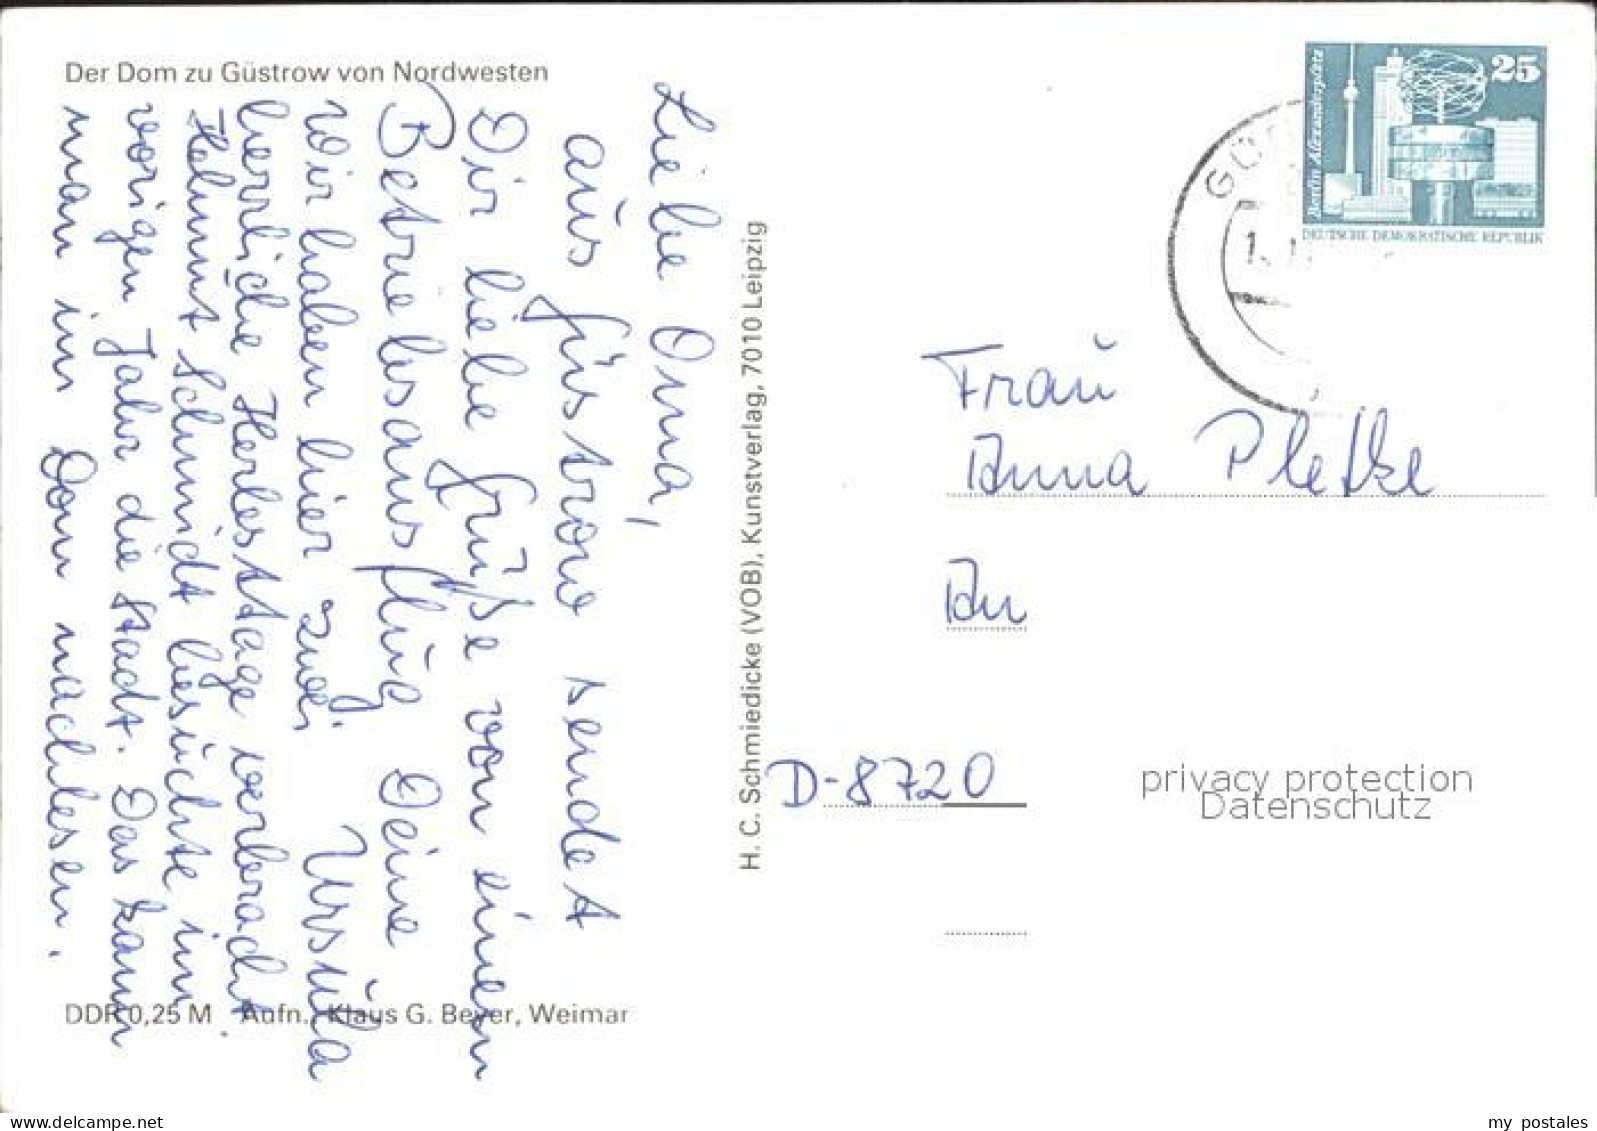 Der Dom zu Güstrow von Nordwesten
Liebe Oma,
aus Güstrow sendet
Dir liebe Grüße von einem
Betriebsausflug Deine
Wir haben hier zwei Ursula
herrliche Herbsttage verbracht.
Helmut Schmidt besuchte im
vorigen Jahr die Stadt. Das kann
man im Dom nachlesen.
DDR 0,25 M Aufn.: Klaus G. Beyer, Weimar
H. C. Schmiedicke (VOB), Kunstverlag, 7010 Leipzig
Berlin, Alexanderplatz
25
DEUTSCHE DEMOKRATISCHE REPUBLIK
Frau
Anna Pletke
An
D-8720
privacy protection
Datenschutz
my postales